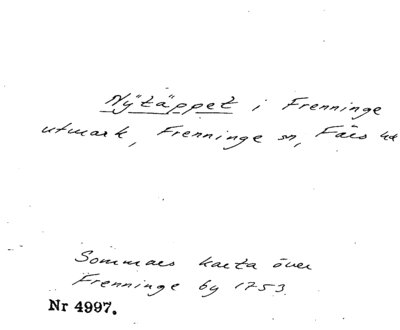 Nÿtäppet i Frenninge
utmark, Frenninge sn, Färs hd
Sommars karta över
Frenninge by 1753.
Nr 4997.